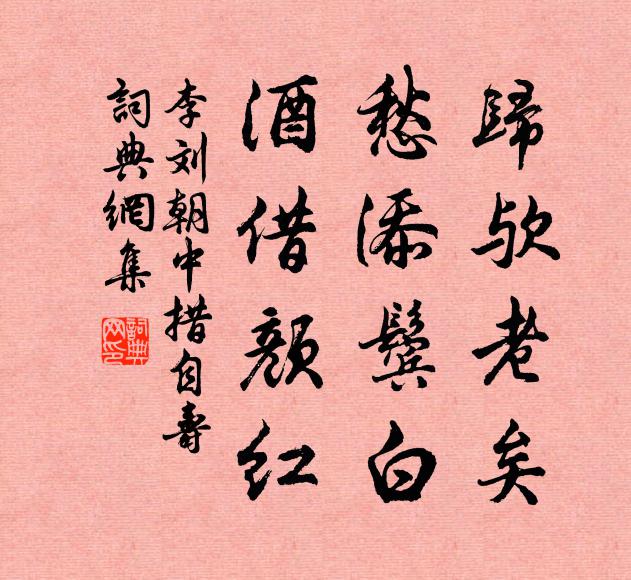 歸欤老矣
愁添鬓白
酒借顔红
李刘朝中措自壽
詞典網集
詞典网印